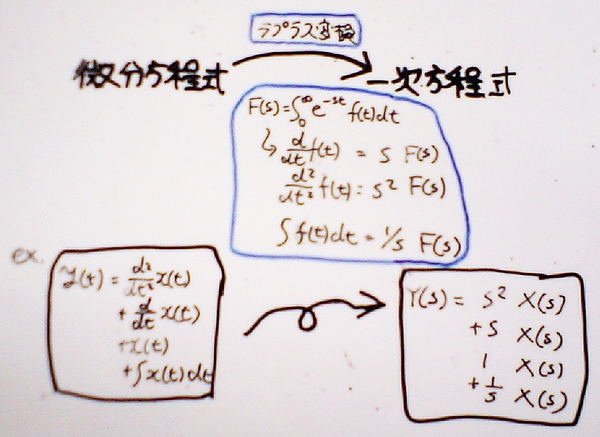 ラプラス変換
微分方程式
一次方程式
F(s)=∫₀^∞ e^{-st} f(t)dt
↳ d/dt f(t) = S F(s)
d²/dt² f(t) = s² F(s)
∫f(t)dt = 1/s F(s)
ex.
y(t) = d²/dt² x(t)
+ d/dt x(t)
+x(t)
+∫x(t)dt
Y(s) = S² X(s)
+S X(s)
1 X(s)
+1/s X(s)